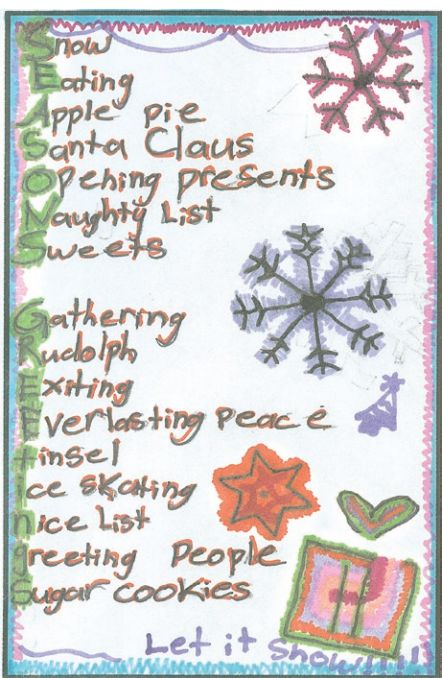 Snow
Eating
Apple pie
Santa Claus
Opening presents
Naughty List
Sweets
Gathering
Rudolph
Exiting
Everlasting Peace
tinsel
ice skating
nice List
greeting People
Sugar cookies
Let it Snow!!!!!